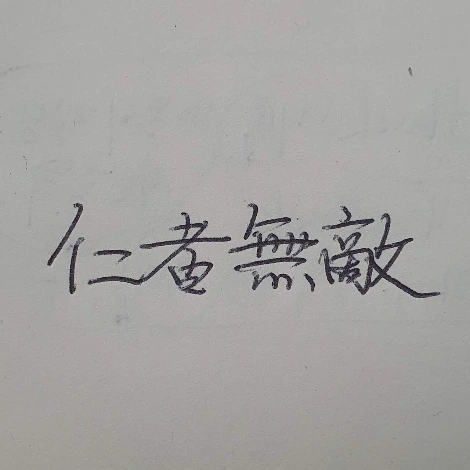 仁者無敵